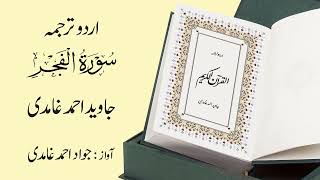 اردو ترجمہ
سُوْرَةُ الْفَجْرِ
جاوید احمد غامدی
آواز : جواد احمد غامدی
القرآن الکریم
جاوید احمد غامدی